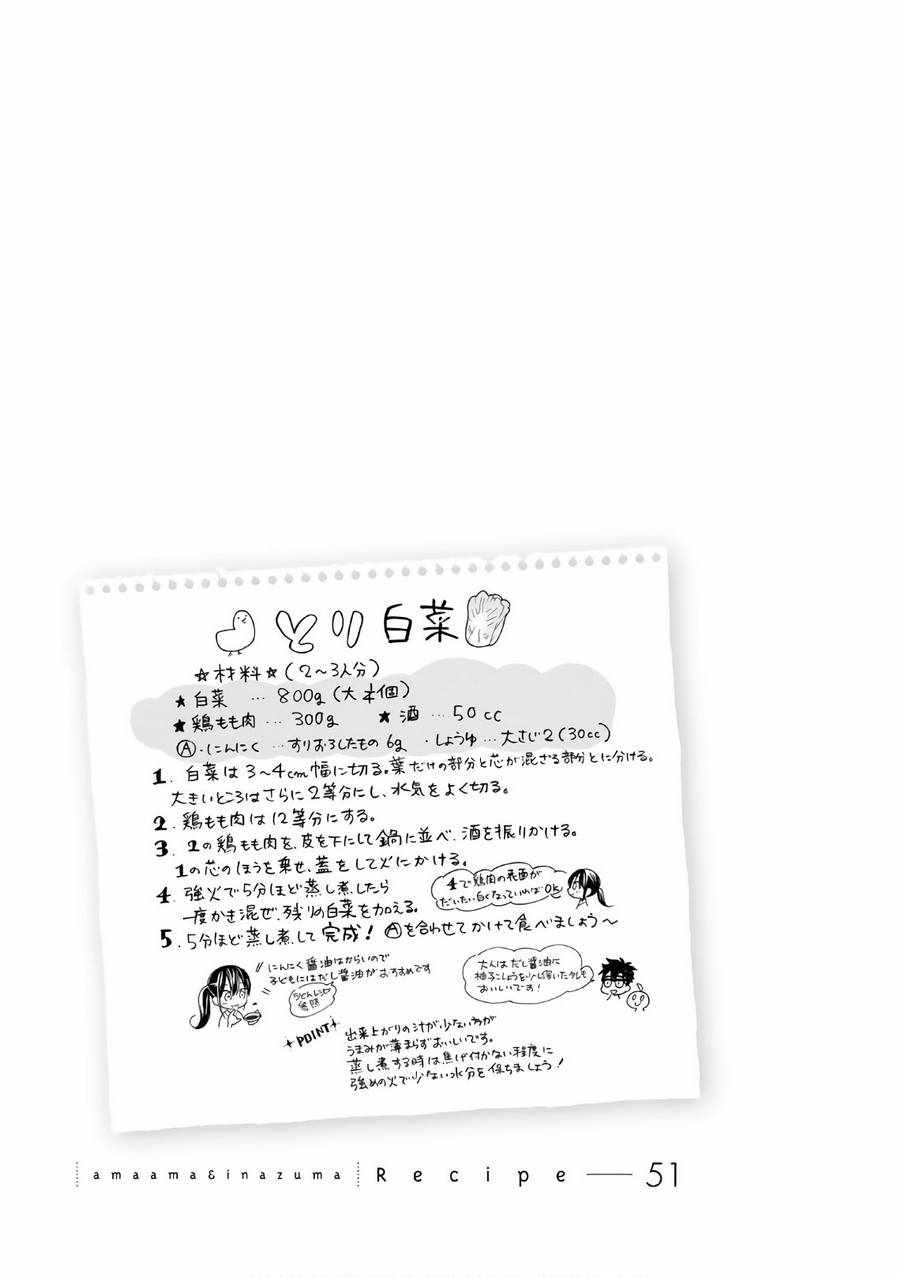 とり白菜
☆材料☆(2〜3人分)
★白菜 … 800g(大¼個)
★鶏もも肉 … 300g ★酒 … 50cc
Ⓐ・にんにく …すりおろしたもの 6g ・しょうゆ … 大さじ2(30cc)
1. 白菜は3〜4cm幅に切る。葉だけの部分と芯が混ざる部分とに分ける。
大きいところはさらに2等分にし、水気をよく切る。
2. 鶏もも肉は12等分にする。
3. 2の鶏もも肉を、皮を下にして鍋に並べ、酒を振りかける。
1の芯のほうを乗せ、蓋をして火にかける。
4. 強火で5分ほど蒸し煮したら
一度かき混ぜ、残りの白菜を加える。
4で鶏肉の表面が
だいたい白くなっていればOK
5. 5分ほど蒸し煮して完成! Ⓐを合わせてかけて食べましょう〜
にんにく醤油はからいので
子どもにはだし醤油がおすすめです
参照
大人はだし醤油に
柚子こしょうを少し溶いたタレも
おいしいです!
POINT
出来上がりの汁が少ない方が
うまみが薄まらずおいしいです。
蒸し煮する時は焦げ付かない程度に
強めの火で少ない水分を保ちましょう!
amaama&inazuma Recipe 51